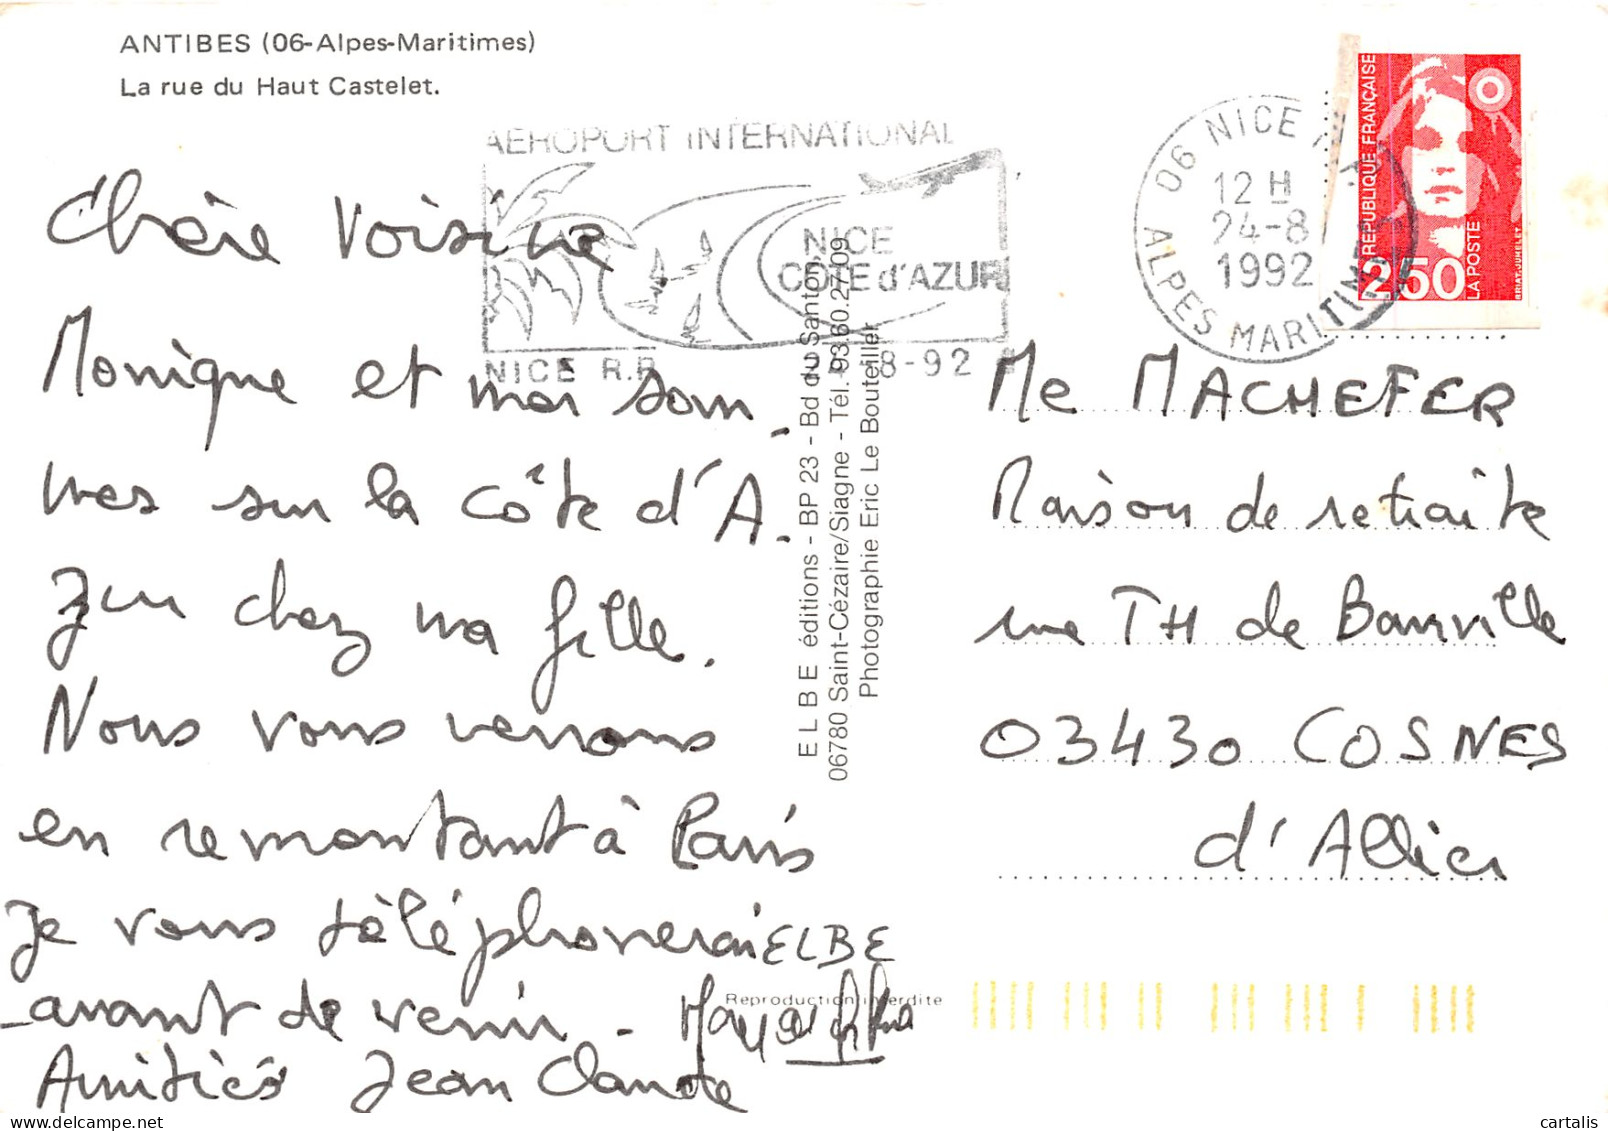 ANTIBES (06-Alpes-Maritimes)
La rue du Haut Castelet.
AÉROPORT INTERNATIONAL
NICE
CÔTE d'AZUR
NICE R.P.
8-92
06 NICE R.P.
12 H
24-8
1992
ALPES MARITIMES
RÉPUBLIQUE FRANÇAISE
2,50
LA POSTE
BRIAT-JUMELET
Chère Voisine
Monique et moi som
mes sur la côte d'A.
Zur chez ma fille.
Nous vous verrons
en remontant à Paris
Je vous téléphonerai
avant de venir -
Amitiés Jean Claude
ELBE
Reproduction interdite
ELBE éditions - BP 23 - Bd du Santon
06780 Saint-Cézaire/Siagne - Tél. 93.60.27.09
Photographie Eric Le Bouteiller
Me MACHEFER
Maison de retraite
rue TH de Banville
03430 COSNES
d'Allier
cartalis